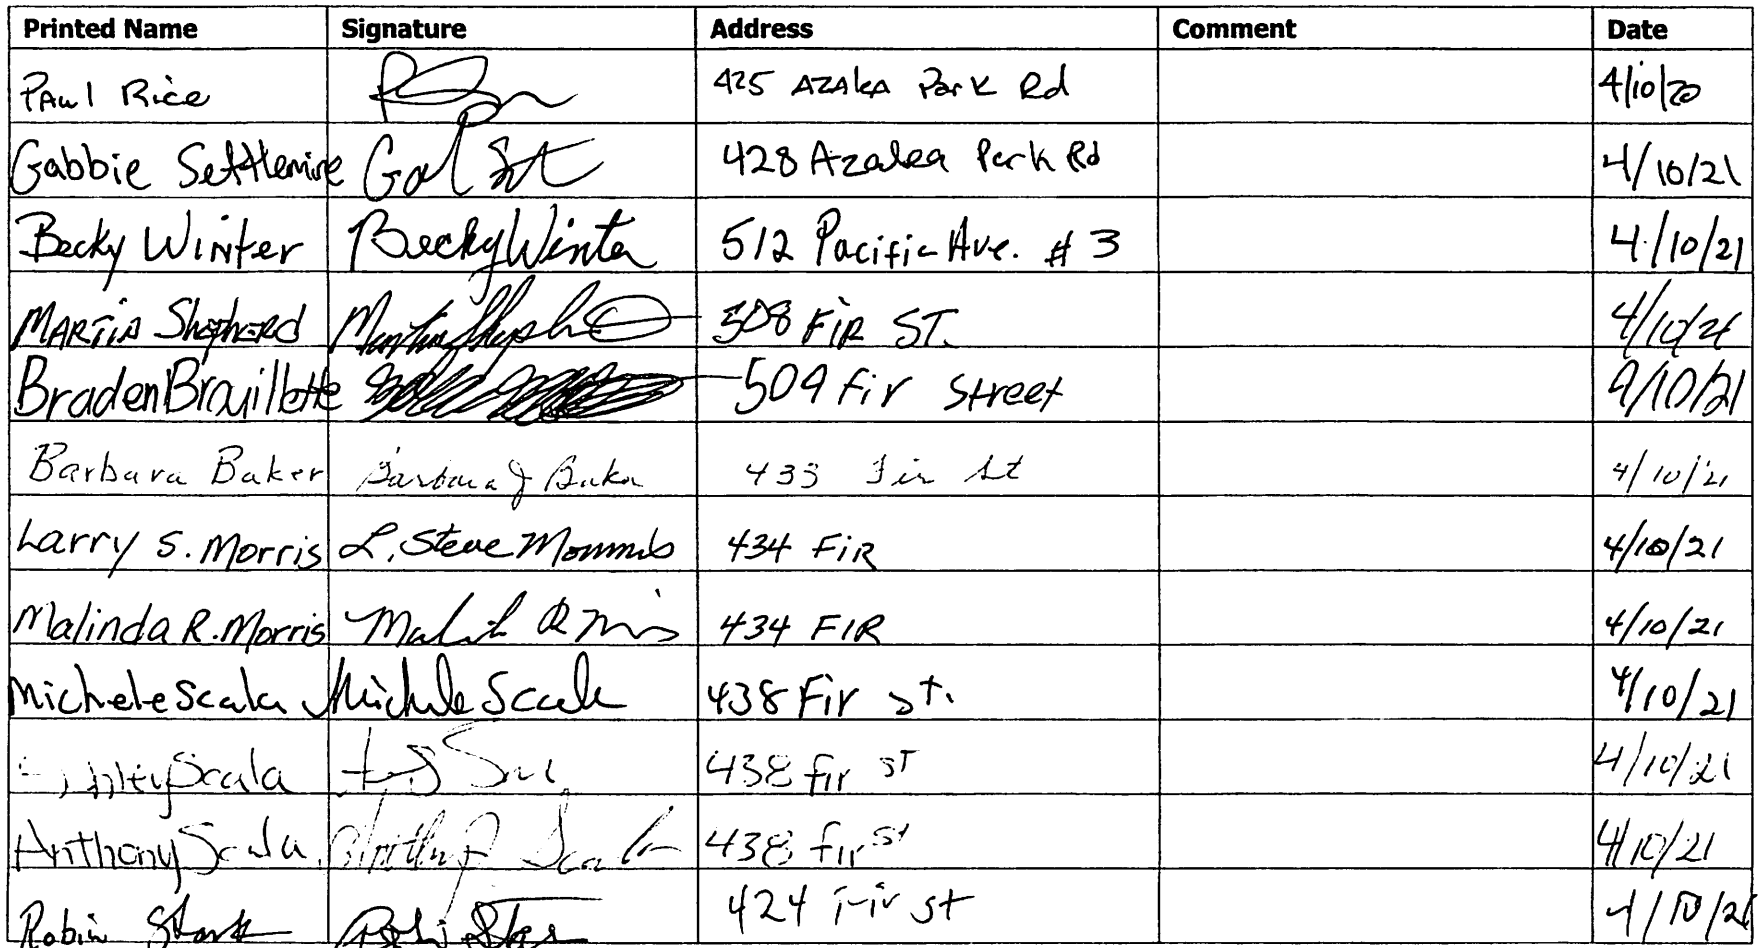 Printed Name Signature Address Comment Date
PAul Rice 425 AZAlea Park Rd 4/10/20
Gabbie Settlemire 428 Azalea Park Rd 4/10/21
Becky Winter Becky Winter 512 Pacific Ave. # 3 4/10/21
MARTIN Shepherd Martin Sheph 508 FIR ST. 4/10/21
Braden Brouillette 509 Fir Street 4/10/21
Barbara Baker Barbara J Baker 433 Fir St 4/10/21
Larry S. Morris L. Steve Morris 434 FIR 4/10/21
Malinda R. Morris R 434 FIR 4/10/21
Michele Scala Michele Scala 438 Fir st. 4/10/21
Scala 438 fir st 4/10/21
Anthony Scala Scala 438 fir st 4/10/21
Robin Stark 424 Fir st 4/10/21